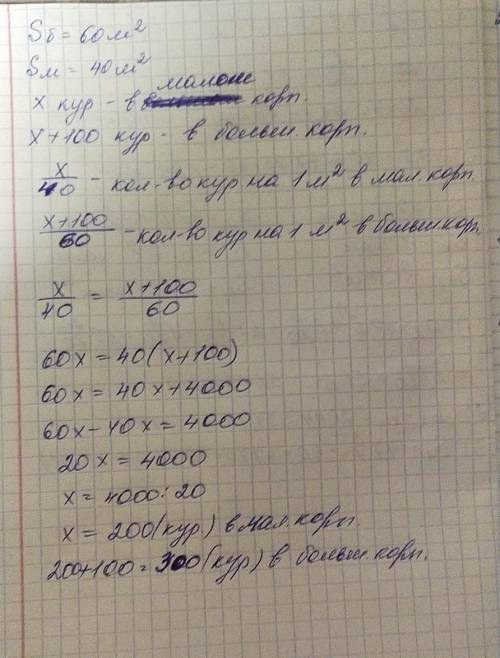 Sб = 60 м²
Sм = 40 м²
малом
x кур - в корп.
x+100 кур - в больш. корп.
x/40 - кол-во кур на 1 м² в мал. корп.
x+100/60 - кол-во кур на 1 м² в больш. корп.
x/40 = x+100/60
60x = 40(x+100)
60x = 40x+4000
60x-40x = 4000
20x = 4000
x = 4000:20
x = 200(кур) в мал. корп.
200+100 = 300(кур) в больш. корп.